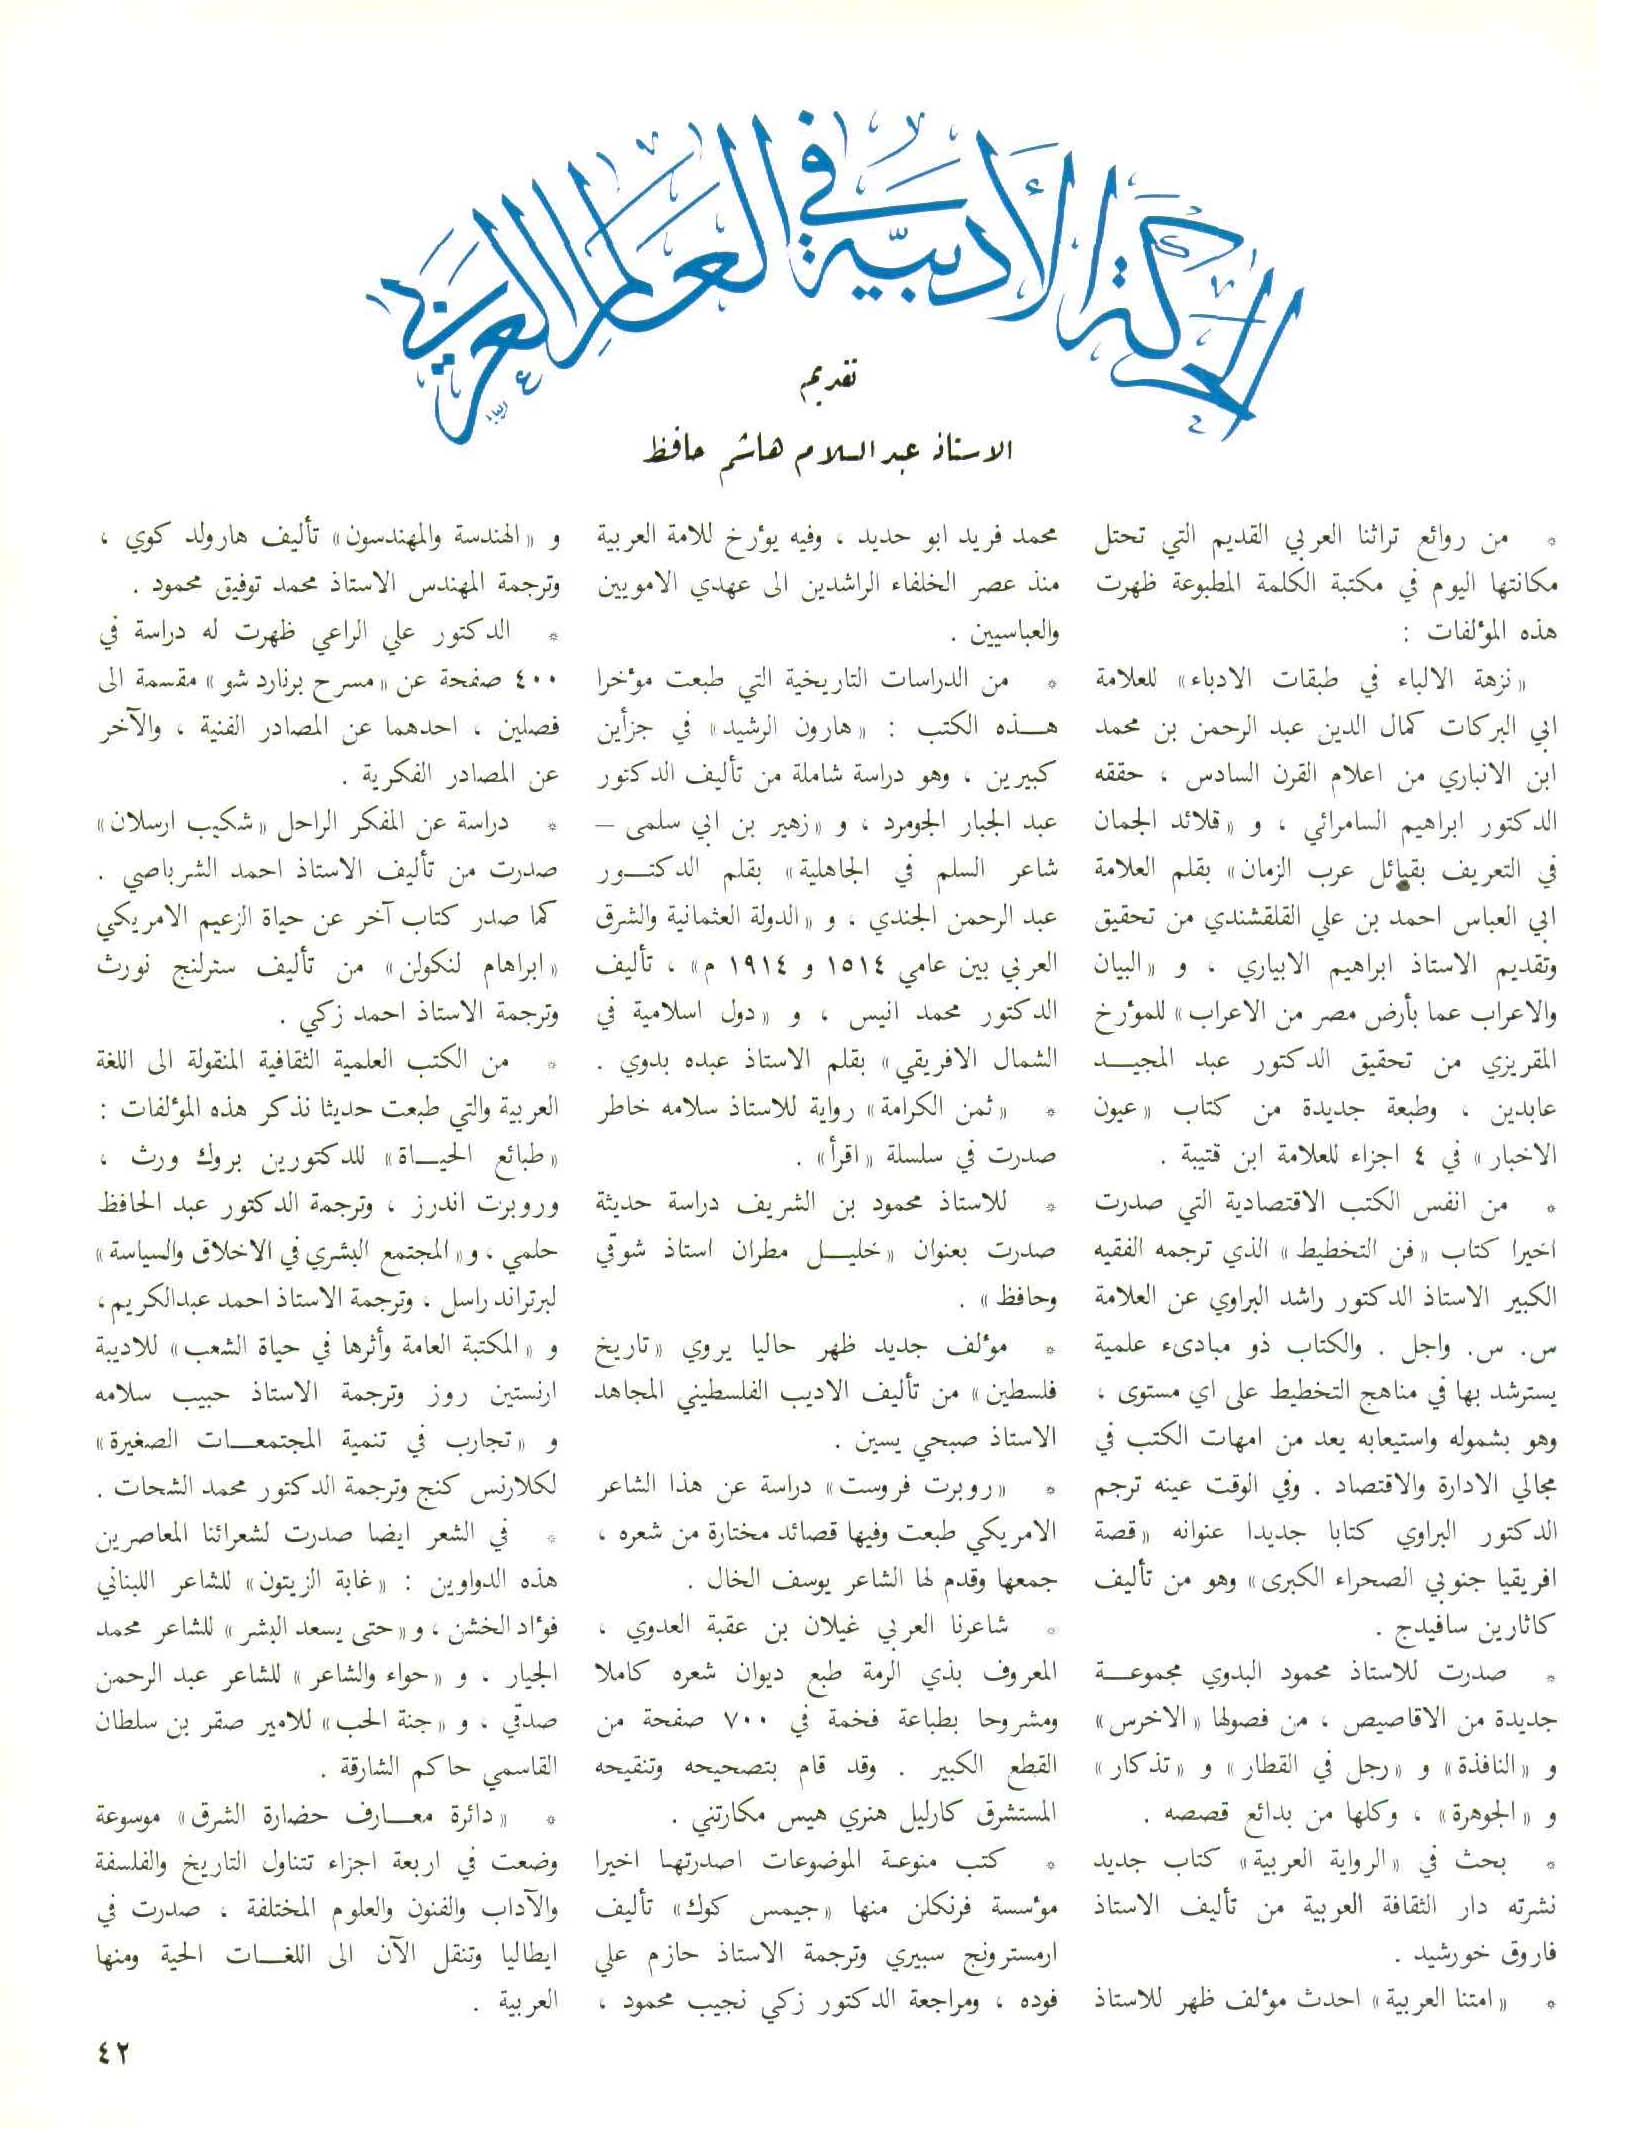 الحركة الأدبية في العالم العربي
تقديم
الاستاذ عبد السلام هاشم حافظ
* من روائع تراثنا العربي القديم التي تحتل
مكانتها اليوم في مكتبة الكلمة المطبوعة ظهرت
هذه المؤلفات :
«نزهة الالباء في طبقات الادباء» للعلامة
ابي البركات كمال الدين عبد الرحمن بن محمد
ابن الانباري من اعلام القرن السادس ، حققه
الدكتور ابراهيم السامرائي ، و «قلائد الجمان
في التعريف بقبائل عرب الزمان» بقلم العلامة
ابي العباس احمد بن علي القلقشندي من تحقيق
وتقديم الاستاذ ابراهيم الابياري ، و «البيان
والاعراب عما بأرض مصر من الاعراب» للمؤرخ
المقريزي من تحقيق الدكتور عبد المجيد
عابدين ، وطبعة جديدة من كتاب «عيون
الاخبار» في ٤ اجزاء للعلامة ابن قتيبة .
* من انفس الكتب الاقتصادية التي صدرت
اخيرا كتاب «فن التخطيط» الذي ترجمه الفقيه
الكبير الاستاذ الدكتور راشد البراوي عن العلامة
س. س. واجل . والكتاب ذو مبادىء علمية
يسترشد بها في مناهج التخطيط على اي مستوى ،
وهو بشموله واستيعابه يعد من امهات الكتب في
مجالي الادارة والاقتصاد . وفي الوقت عينه ترجم
الدكتور البراوي كتابا جديدا عنوانه «قصة
افريقيا جنوبي الصحراء الكبرى» وهو من تأليف
كاثارين سافيدج .
* صدرت للاستاذ محمود البدوي مجموعة
جديدة من الاقاصيص ، من فصولها «الاخرس»
و «النافذة» و «رجل في القطار» و «تذكار»
و «الجوهرة» ، وكلها من بدائع قصصه .
* بحث في «الرواية العربية» كتاب جديد
نشرته دار الثقافة العربية من تأليف الاستاذ
فاروق خورشيد .
* «امتنا العربية» احدث مؤلف ظهر للاستاذ
محمد فريد ابو حديد ، وفيه يؤرخ للامة العربية
منذ عصر الخلفاء الراشدين الى عهدي الامويين
والعباسيين .
* من الدراسات التاريخية التي طبعت مؤخرا
هذه الكتب : «هارون الرشيد» في جزأين
كبيرين ، وهو دراسة شاملة من تأليف الدكتور
عبد الجبار الجومرد ، و «زهير بن ابي سلمى —
شاعر السلم في الجاهلية» بقلم الدكتور
عبد الرحمن الجندي ، و «الدولة العثمانية والشرق
العربي بين عامي ١٥١٤ و ١٩١٤ م» ، تأليف
الدكتور محمد انيس ، و «دول اسلامية في
الشمال الافريقي» بقلم الاستاذ عبده بدوي .
* «ثمن الكرامة» رواية للاستاذ سلامه خاطر
صدرت في سلسلة «اقرأ» .
* للاستاذ محمود بن الشريف دراسة حديثة
صدرت بعنوان «خليل مطران استاذ شوقي
وحافظ» .
* مؤلف جديد ظهر حاليا يروي «تاريخ
فلسطين» من تأليف الاديب الفلسطيني المجاهد
الاستاذ صبحي يسين .
* «روبرت فروست» دراسة عن هذا الشاعر
الامريكي طبعت وفيها قصائد مختارة من شعره ،
جمعها وقدم لها الشاعر يوسف الخال .
* شاعرنا العربي غيلان بن عقبة العدوي ،
المعروف بذي الرمة طبع ديوان شعره كاملا
ومشروحا بطباعة فخمة في ٧٠٠ صفحة من
القطع الكبير . وقد قام بتصحيحه وتنقيحه
المستشرق كارليل هنري هيس مكارتني .
* كتب منوعة الموضوعات اصدرتها اخيرا
مؤسسة فرنكلن منها «جيمس كوك» تأليف
ارمسترونج سبيري وترجمة الاستاذ حازم علي
فوده ، ومراجعة الدكتور زكي نجيب محمود ،
و «الهندسة والمهندسون» تأليف هارولد كوي ،
وترجمة المهندس الاستاذ محمد توفيق محمود .
* الدكتور علي الراعي ظهرت له دراسة في
٤٠٠ صفحة عن «مسرح برنارد شو» مقسمة الى
فصلين ، احدهما عن المصادر الفنية ، والآخر
عن المصادر الفكرية .
* دراسة عن المفكر الراحل «شكيب ارسلان»
صدرت من تأليف الاستاذ احمد الشرباصي .
كما صدر كتاب آخر عن حياة الزعيم الامريكي
«ابراهام لنكولن» من تأليف سترلنج نورث
وترجمة الاستاذ احمد زكي .
* من الكتب العلمية الثقافية المنقولة الى اللغة
العربية والتي طبعت حديثا نذكر هذه المؤلفات :
«طبائع الحياة» للدكتورين بروك ورث ،
وروبرت اندرز ، وترجمة الدكتور عبد الحافظ
حلمي ، و«المجتمع البشري في الاخلاق والسياسة»
لبرتراند راسل ، وترجمة الاستاذ احمد عبدالكريم،
و «المكتبة العامة وأثرها في حياة الشعب» للاديبة
ارنستين روز وترجمة الاستاذ حبيب سلامه
و «تجارب في تنمية المجتمعات الصغيرة»
لكلارنس كنج وترجمة الدكتور محمد الشحات .
* في الشعر ايضا صدرت لشعرائنا المعاصرين
هذه الدواوين : «غابة الزيتون» للشاعر اللبناني
فؤاد الخشن ، و«حتى يسعد البشر» للشاعر محمد
الجيار . و «حواء والشاعر» للشاعر عبد الرحمن
صدقي ، و «جنة الحب» للامير صقر بن سلطان
القاسمي حاكم الشارقة .
* «دائرة معارف حضارة الشرق» موسوعة
وضعت في اربعة اجزاء تتناول التاريخ والفلسفة
والآداب والفنون والعلوم المختلفة ، صدرت في
ايطاليا وتنقل الآن الى اللغات الحية ومنها
العربية .
٤٢